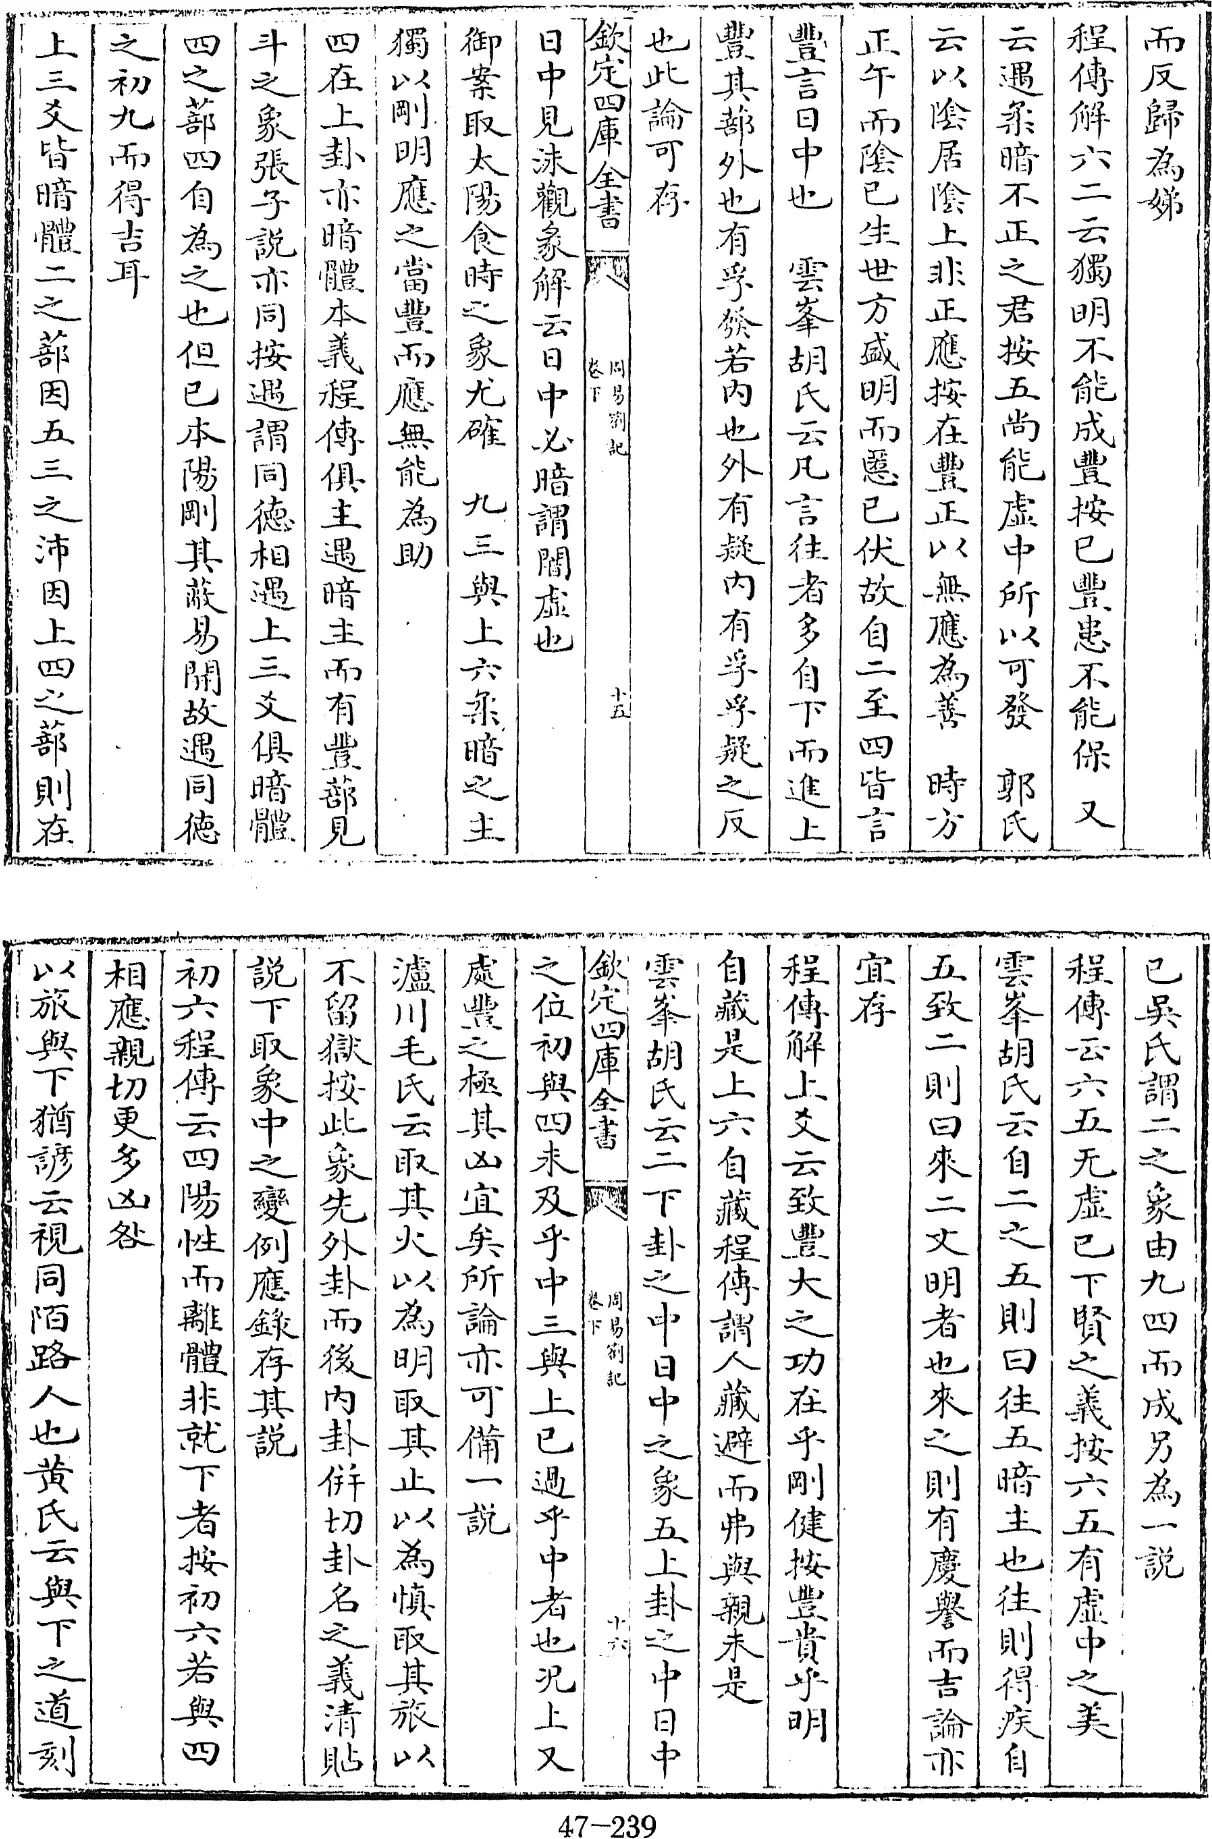 而反歸為娣
程傳解六二云獨明不能成豐按已豐患不能保　又
云遇柔暗不正之君按五尚能虛中所以可發　郭氏
云以陰居陰上非正應按在豐正以無應為善　時方
正午而陰已生世方盛明而慝已伏故自二至四皆言
豐言日中也　雲峯胡氏云凡言往者多自下而進上
豐其蔀外也有孚發若内也外有疑内有孚孚疑之反
也此論可存
欽定四庫全書
周易劄記
卷下
十五
日中見沬觀彖解云日中必暗謂闇虛也
御案取太陽食時之象尤確　九三與上六柔暗之主
獨以剛明應之當豐而應無能為助
四在上卦亦暗體本義程傳俱主遇暗主而有豐蔀見
斗之象張子說亦同按遇謂同德相遇上三爻俱暗體
四之蔀四自為之也但已本陽剛其蔽易開故遇同德
之初九而得吉耳
上三爻皆暗體二之蔀因五三之沛因上四之蔀則在
已吳氏謂二之象由九四而成另為一説
程傳云六五无虛已下賢之義按六五有虛中之美
雲峯胡氏云自二之五則曰往五暗主也往則得疾自
五致二則曰來二文明者也來之則有慶譽而吉論亦
宜存
程傳解上爻云致豐大之功在乎剛健按豐貴乎明
自藏是上六自藏程傳謂人藏避而弗與親未是
雲峯胡氏云二下卦之中日中之象五上卦之中日中
欽定四庫全書
周易劄記
卷下
十六
之位初與四未及乎中三與上已過乎中者也況上又
處豐之極其凶宜矣所論亦可備一說
瀘川毛氏云取其火以為明取其止以為慎取其旅以
不留獄按此象先外卦而後内卦併切卦名之義清貼
說下取象中之變例應錄存其說
初六程傳云四陽性而離體非就下者按初六若與四
相應親切更多凶咎
以旅與下猶諺云視同陌路人也黄氏云與下之道刻
47-239